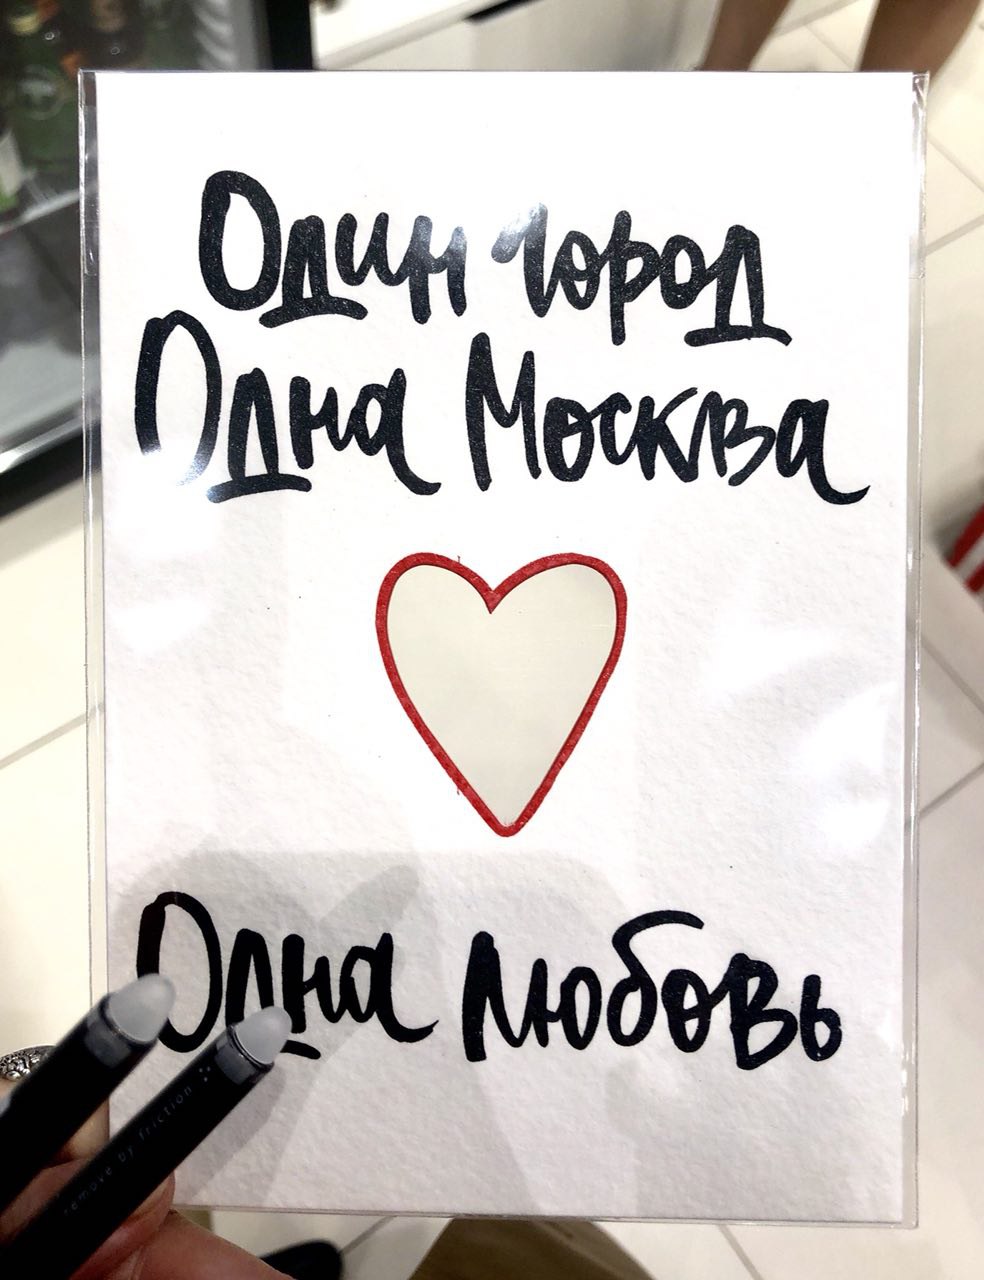 Один город
Одна Москва
Одна любовь
remove by friction